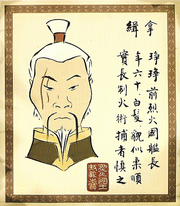 緝拿
琤璋前烈火國艦長
年六十白髮貌似柔順
實長制火術捕者慎之